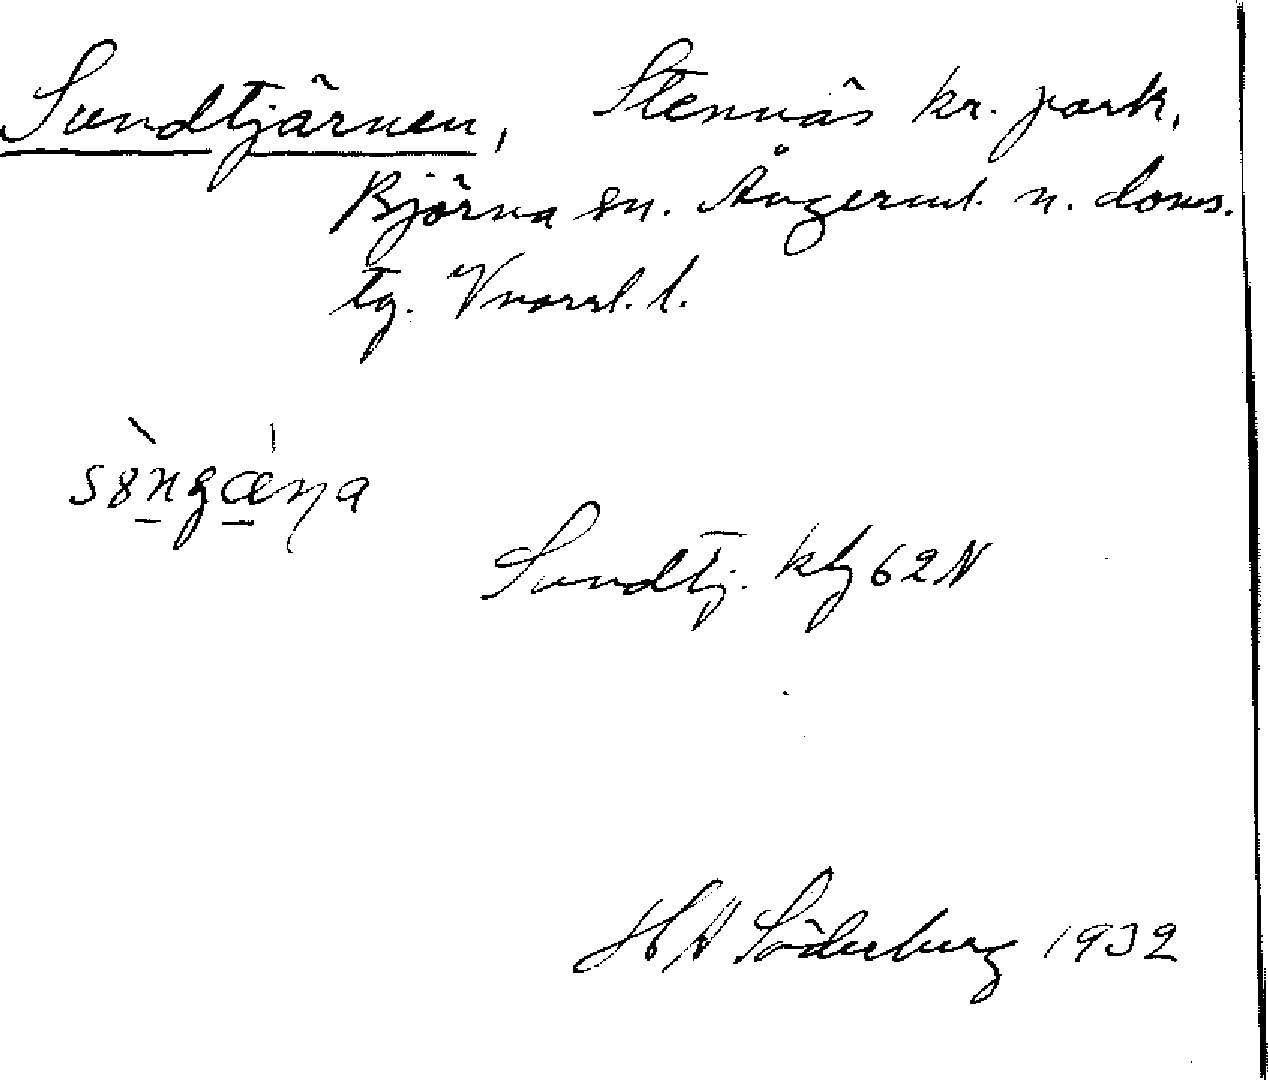 Sundtjärnen, Stennäs kr. park,
Björna sn. Ångerml. n. doms.
tg. Vnorrl. l.
Sundtj. kbl 62 N
H H Söderberg 1932